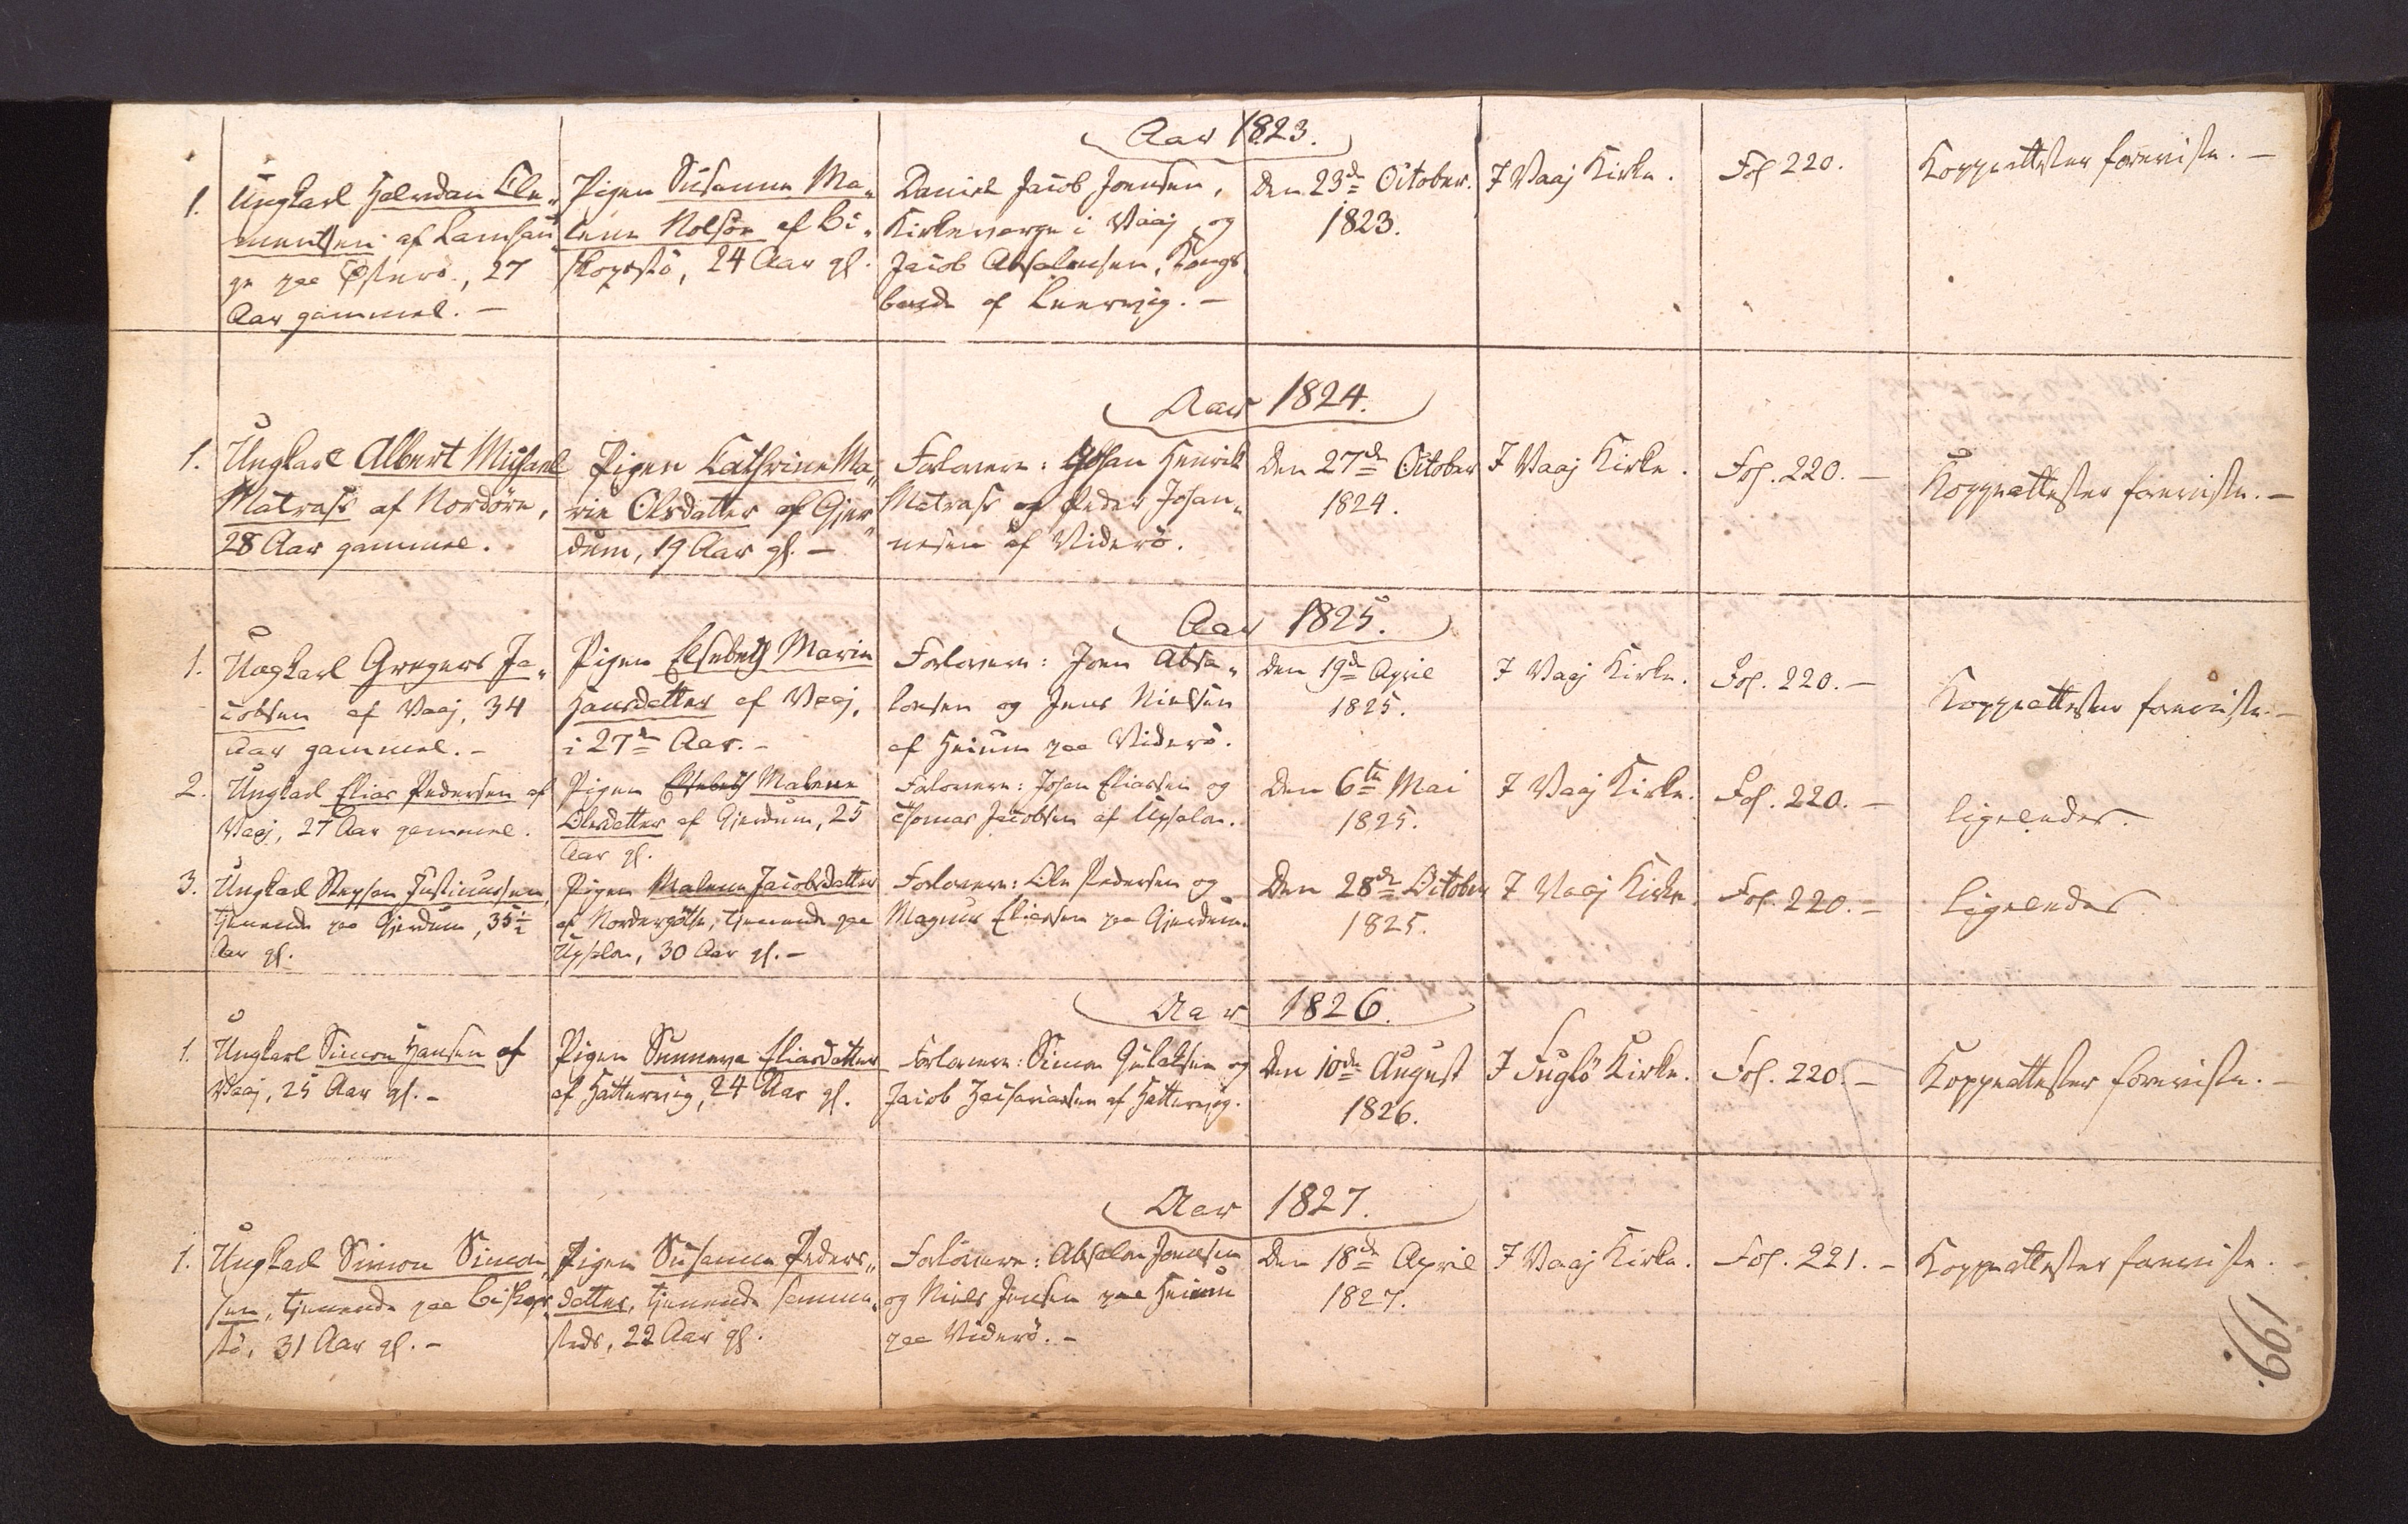 Aar 1823.
1.
Ungkarl Halvdan Cle-
mentsen af Lamhau
ge paa Østerø, 27
Aar gammel. —
Pigen Susanne Ma-
lene Nolsøe af Bi-
skopstø, 24 Aar gl.
Daniel Jacob Joensen,
Kirkeværge i Vaaj og
Jacob Absalonsen, Kongs
bonde af Leervig. —
Den 23de October.
1823.
I Vaaj Kirke.
Fol 220.
Koppeattester foreviste. —
Aar 1824.
1.
Ungkarl Albert Michael
Matrass af Nordøre,
28 Aar gammel.
Pigen Cathrine Ma-
rie Olesdatter af Gjer-
dum, 19 Aar gl. —
Forlovere: Johan Henrik
Matrass og Peder Johan-
nesen af Viderø.
Den 27de October
1824.
I Vaaj Kirke.
Fol. 220. —
Koppeattester foreviste. —
Aar 1825.
1.
Ungkarl Gregers Ja-
cobsen af Vaaj, 34
Aar gammel. —
Pigen Elsebeth Marie
Hansdatter af Vaaj,
i 27de Aar. —
Forlovere: Joen Absa-
lonsen og Jens Nielsen
af Heium paa Viderø.
Den 19de April
1825.
I Vaaj Kirke.
Fol. 220. —
Koppeattester foreviste. —
2.
Ungkarl Elias Pedersen af
Vaaj, 27 Aar gammel.
Pigen Elsebeth Malene
Olesdatter af Gjerdum, 25
Aar gl.
Forlovere: Johan Eliassen og
Thomas Jacobsen af Upsalon.
Den 6te Mai
1825.
I Vaaj Kirke.
Fol. 220. —
ligeledes.
3.
Ungkarl Stephan Justinussen,
tjenende paa Gjerdum, 35½
Aar gl.
Pigen Malene Jacobsdatter
af Nordergøthe, tjenende paa
Upsalon, 30 Aar gl. —
Forlovere: Ole Pedersen og
Magnus Eliassen paa Gjerdum.
Den 28de October
1825.
I Vaaj Kirke.
Fol. 220. —
Ligeledes.
Aar 1826.
1.
Ungkarl Simon Hansen af
Vaaj, 25 Aar gl. —
Pigen Sunneva Eliasdatter
af Hattervig, 24 Aar gl.
Forlovere: Simon Gulaksen og
Jacob Zachariassen af Hattervig.
Den 10de August
1826.
I Fuglø Kirke.
Fol. 220. —
Koppeattester foreviste. —
Aar 1827.
1.
Ungkarl Simon Simon-
sen, tjenende paa Biskops
tø, 31 Aar gl. —
Pigen Susanne Peders-
datter, tjenende samme-
steds, 22 Aar gl.
Forlovere: Absalon Joensen
og Niels Jensen paa Heium
paa Viderø. —
Den 18de April
1827.
I Vaaj Kirke.
Fol. 221. —
Koppeattester foreviste.
199.